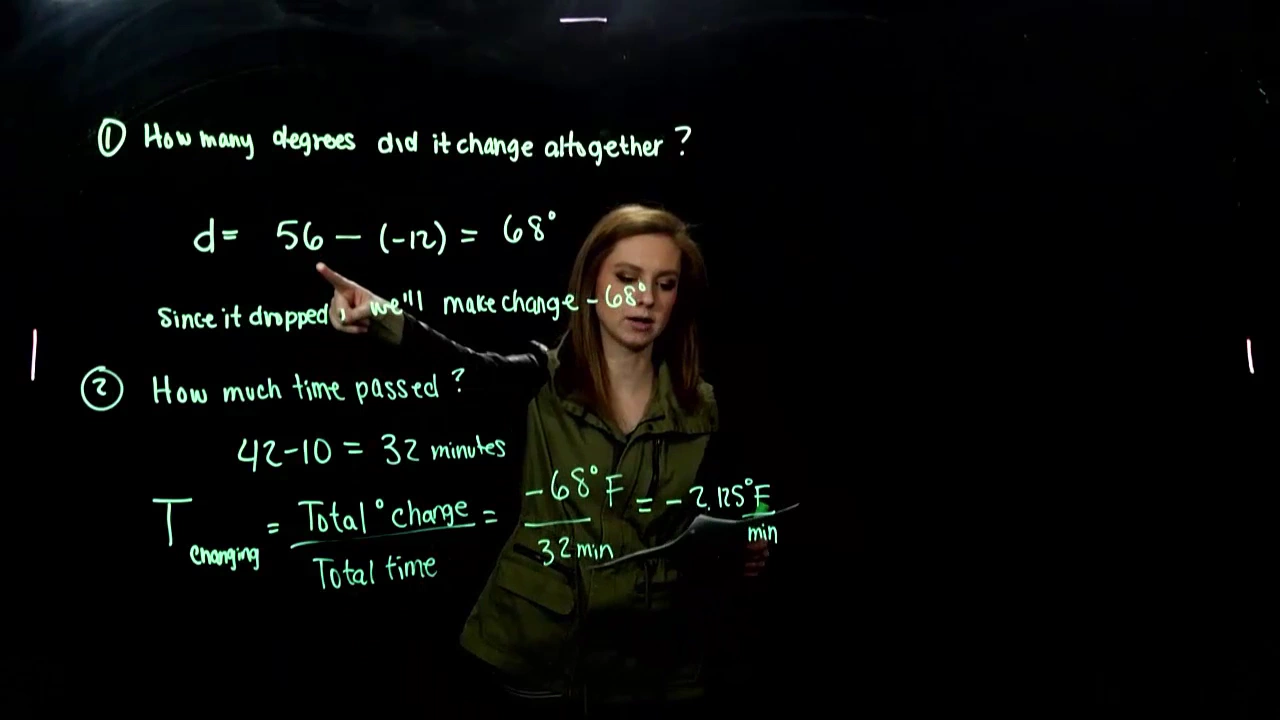 ① How many degrees did it change altogether?
d = 56 - (-12) = 68°
Since it dropped, we'll make change -68°
② How much time passed?
42-10 = 32 minutes
T changing = Total ° change / Total time = -68°F / 32 min = -2.125°F / min